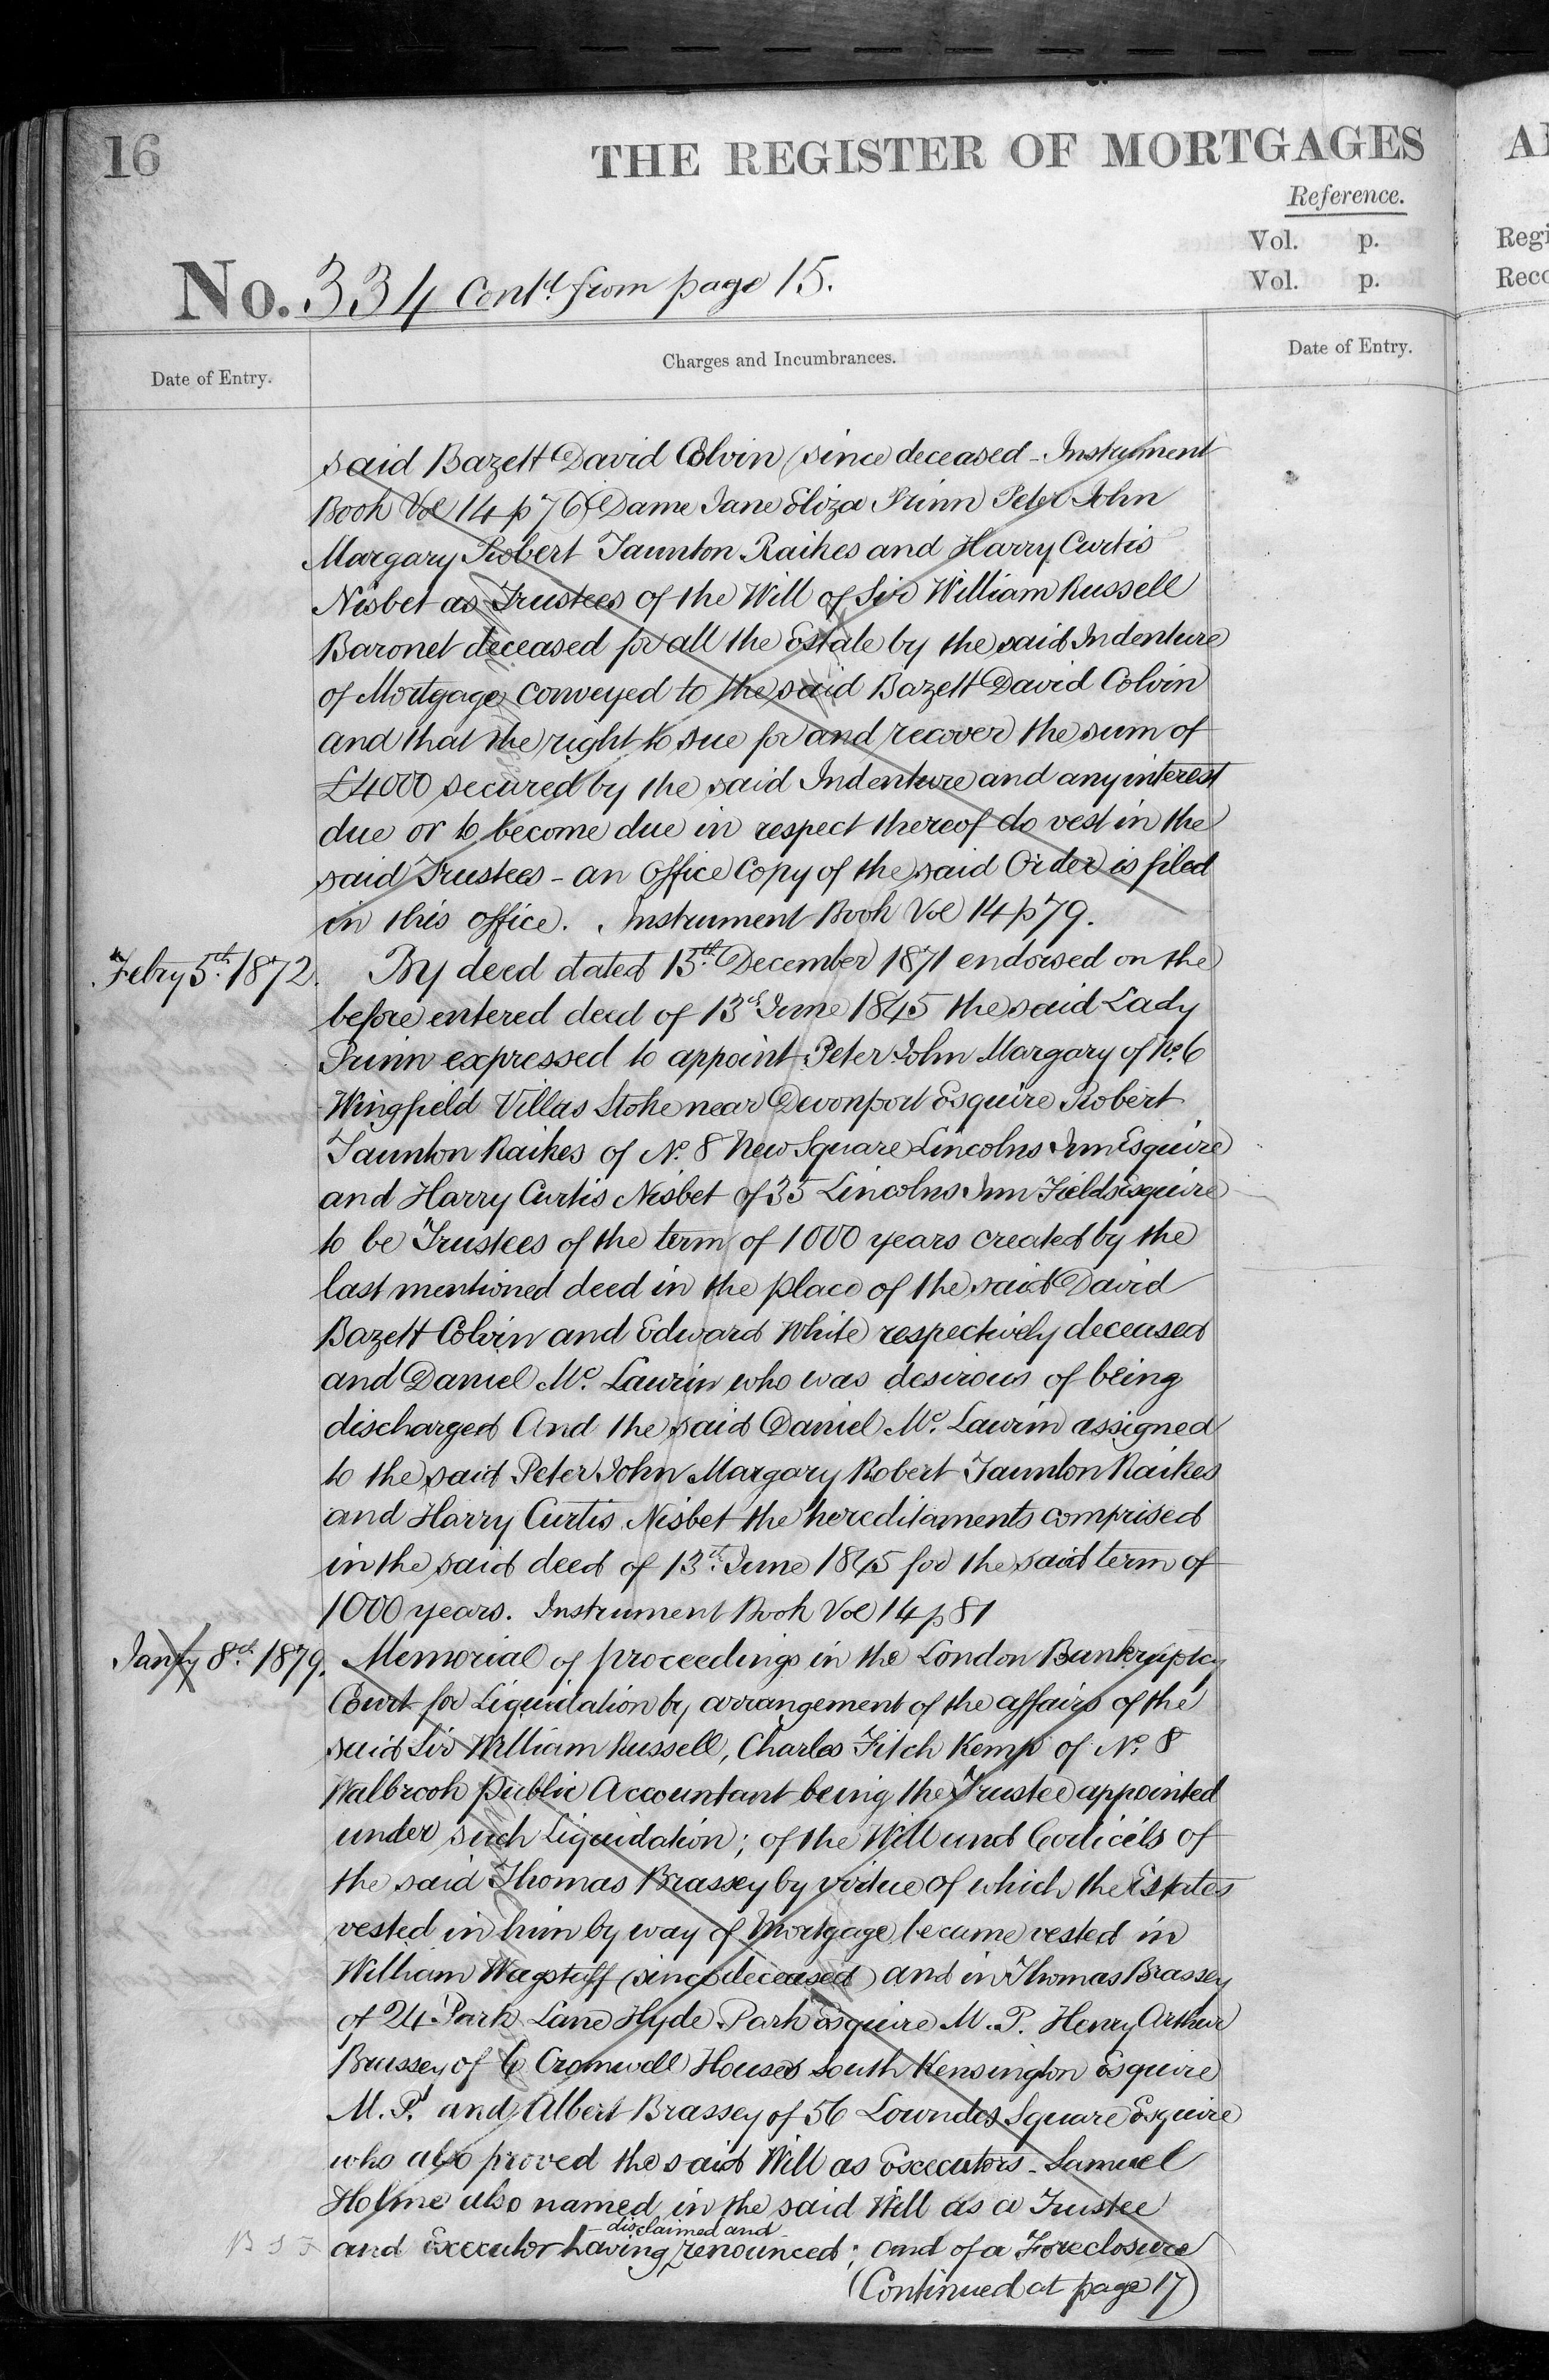 16
THE REGISTER OF MORTGAGES
Reference.
Vol. p.
Vol. p.
No. 334 Contd. from page 15.
Date of Entry.
Charges and Incumbrances.
Date of Entry.
said Bazett David Colvin (since deceased - Instrument
Book Vol 14 p 76) Dame Jane Eliza Prinn Peter John
Margary Robert Taunton Raikes and Harry Curtis
Nisbet as Trustees of the Will of Sir William Russell
Baronet deceased for all the Estate by the said Indenture
of Mortgage conveyed to the said Bazett David Colvin
and that the right to sue for and recover the sum of
£4000 secured by the said Indenture and any interest
due or to become due in respect thereof do vest in the
said Trustees - an Office Copy of the said Order is filed
in this office. Instrument Book Vol 14 p 79.
Febry 5th. 1872. By deed dated 15th. December 1871 endorsed on the
before entered deed of 13th June 1845 the said Lady
Prinn expressed to appoint Peter John Margary of No. 6
Wingfield Villas Stoke near Devonport Esquire Robert
Taunton Raikes of No. 8 New Square Lincolns Inn Esquire
and Harry Curtis Nisbet of 35 Lincolns Inn Fields Esquire
to be Trustees of the term of 1000 years created by the
last mentioned deed in the place of the said David
Bazett Colvin and Edward White respectively deceased
and Daniel Mc. Laurin who was desirous of being
discharged And the said Daniel Mc. Laurin assigned
to the said Peter John Margary Robert Taunton Raikes
and Harry Curtis Nisbet the hereditaments comprised
in the said deed of 13th. June 1845 for the said term of
1000 years. Instrument Book Vol 14 p 81
Jany 8th. 1879. Memorial of proceedings in the London Bankruptcy
Court for Liquidation by arrangement of the affairs of the
said Sir William Russell, Charles Fitch Kemp of No. 8
Walbrook Public Accountant being the Trustee appointed
under such Liquidation; of the Will and Codicils of
the said Thomas Brassey by virtue of which the Estates
vested in him by way of Mortgage became vested in
William Wagstaff (since deceased) and in Thomas Brassey
of 24 Park Lane Hyde Park Esquire M.P. Henry Arthur
Brassey of 6 Cromwell Houses South Kensington Esquire
M.P. and Albert Brassey of 56 Lowndes Square Esquire
who also proved the said Will as Executors - Samuel
Holme also named in the said Will as a Trustee
disclaimed and
and Executor having renounced; and of a Foreclosure
(Continued at page 17)